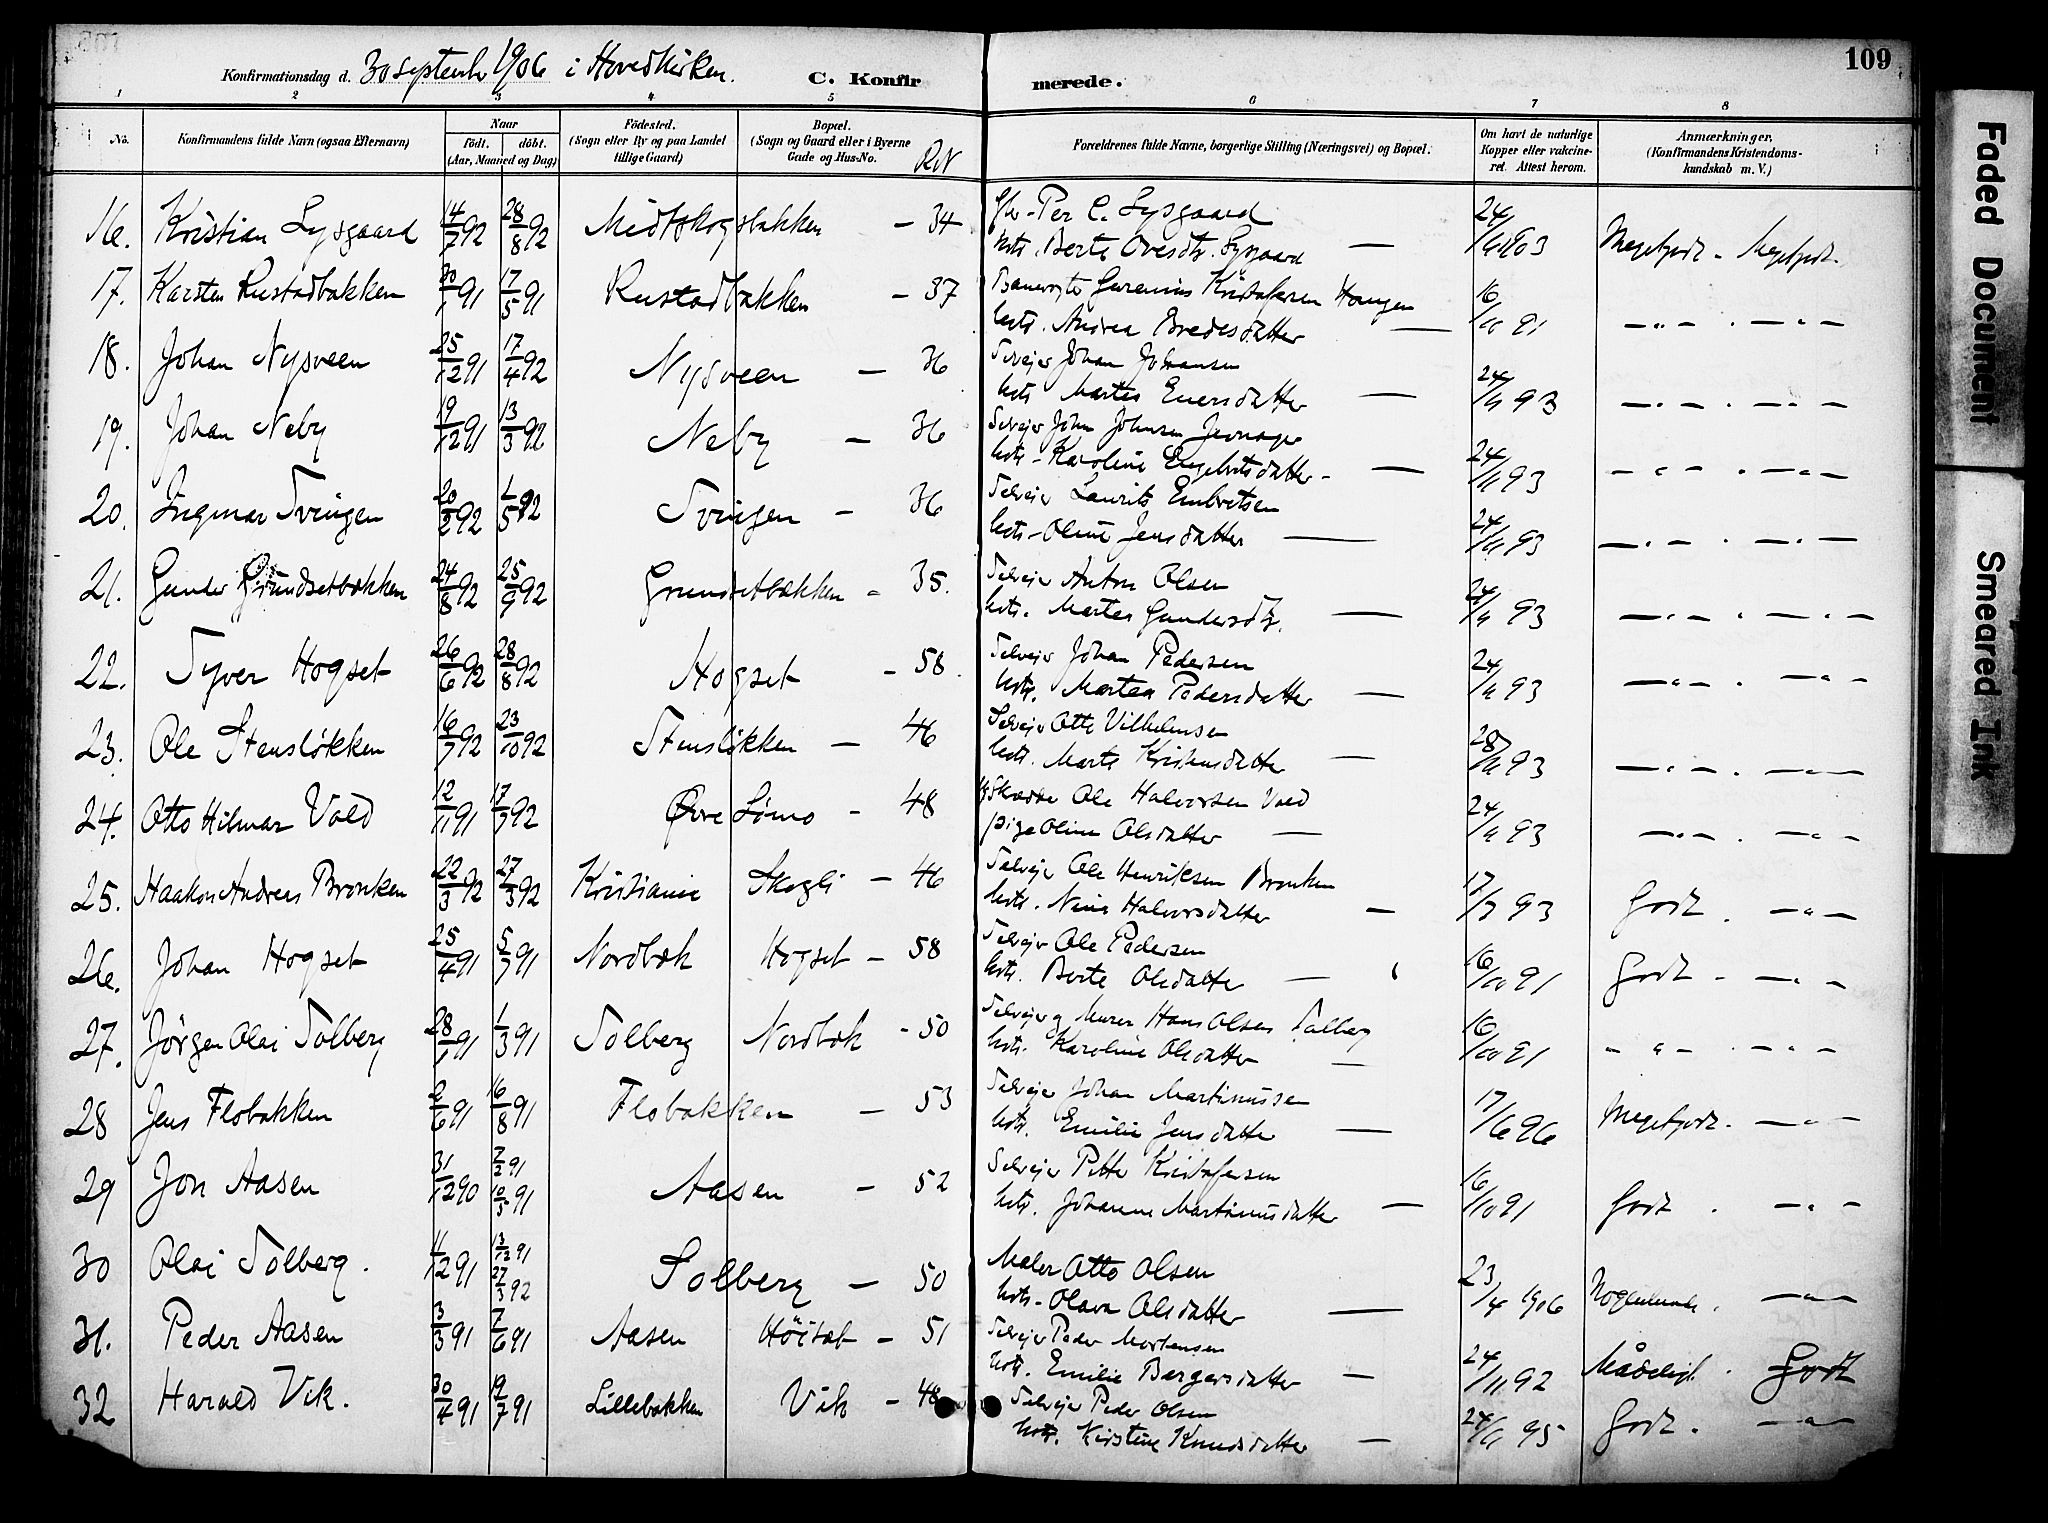 109
Konfirmationsdag d. 30 septembr 1906 i Hovedkirken.
C. Konfirmerede.
1 2 3 4 5 6 7 8
No. Konfirmandens fulde Navn (ogsaa Efternavn) Naar født. døbt. (Aar, Maaned og Dag) Fødested. (Sogn eller By og paa Landet tillige Gaard) Bopæl. (Sogn og Gaard eller i Byerne Gade og Hus-No. Forældrenes fulde Navne, borgerlige Stilling (Næringsvei) og Bopæl. Om havt de naturlige Kopper eller vakcineret. Attest herom. Anmærkninger, (Konfirmandens Kristendomskundskab m. V.)
16. Kristian Lysgaard 14/7 92 28/8 92 Midtskogsbakken - 34 Per C. Lysgaard 24/11 903 Megetgodt - Megetgodt.
hstr. Berte Ovesdtr. Lysgaard —
17. Karsten Rustadbakken 30/1 91 17/5 91 Rustadbakken - 37 Banevogter Kristofersen Haugen 16/10 91 — " — . — " —
hstr. Andrea Bredesdatter —
18. Johan Nysveen 25/12 91 17/4 92 Nysveen — 36 Selvejer Johan Johansen 24/11 93 — " — . — " —
hstr. Martea Enersdatter —
19. Johan Neby 19/12 91 13/3 92 Neby — 36 Selvejer John Johnsen 24/11 93 — " — . — " —
hstr. Karoline Engebretsdatter —
20. Ingmar Svingen 20/2 92 1/5 92 Svingen - 36 Selvejer Laurits Embretsen 24/11 93 — " — . — " —
hstr. Oline Jensdatter —
21. Gunder Grundsetbakken 24/8 92 25/9 92 Grundsetbakken - 35. Selvejer Anton Olsen 24/11 93 — " — . — " —
hstr. Martea Gundersdtr. —
22. Syver Hogset 26/6 92 28/8 92 Hogset - 58 Selvejer Johan Pedersen 24/11 93 — " — . — " —
hstr. Martea Pedersdatter —
23. Ole Stensløkken 16/7 92 23/10 92 Stensløkken — 46 Selvejer Otto Vilhelmsen 28/11 93 — " — . — " —
hstr. Marte Kristensdatter —
24. Otto Hilmar Vold 12/11 91 17/7 92 Øvre Lømo - 48 Ole Halvorsen Vold 24/11 93 — " — . — " —
pige Oline Olsdatter —
25. Haakon Andreas Bronken 22/3 92 27/3 92 Kristiania Skogli - 46 Selvejer Ole Henriksen Bronken 17/7 93 Godt . — " —
hstr. Nina Halvorsdatter —
26. Johan Hogset 25/4 91 5/7 91 Nordbæk Hogset - 58 Selvejer Ole Pedersen 16/10 91 Godt - — " —
hstr. Berte Olsdatter —
27. Jörgen Olai Solberg 28/1 91 1/3 91 Solberg Nordbæk - 50 Selvejer og Murer Hans Olsen Solberg 16/10 91 — " — . — " —
hstr. Karoline Olsdatter —
28 Jens Flobakken 2/6 91 16/8 91 Flobakken — 53 Selvejer Johan Martinussen 17/6 96 Megetgodt. — " —
hstr. Emilie Jensdatter —
29 Jon Aasen 31/12 90 7/2 91 10/5 91 Aasen — 52 Selvejer Petter Kristofersen 16/10 91 Godt . — " —
hstr. Johanne Martinusdatter —
30 Olai Solberg. 11/12 91 13/12 91 27/3 92 Solberg — 50 Maler Otto Olsen 23/4 1906 — " —
hstr. Olava Olsdatter —
31. Peder Aasen 3/3 91 7/6 91 Aasen Höitat - 51 Selvejer Peder Mortensen 24/11 92 Mådeligt . Godt
hstr. Emilie Bergersdatter —
32 Harald Vik. 30/4 91 19/7 91 Lillebakken Vik - 48 Selvejer Peder Olsen 24/11 95 Godt . — " —
hstr. Kirstine Knudsdatter —
Faded Document
Smeared Ink